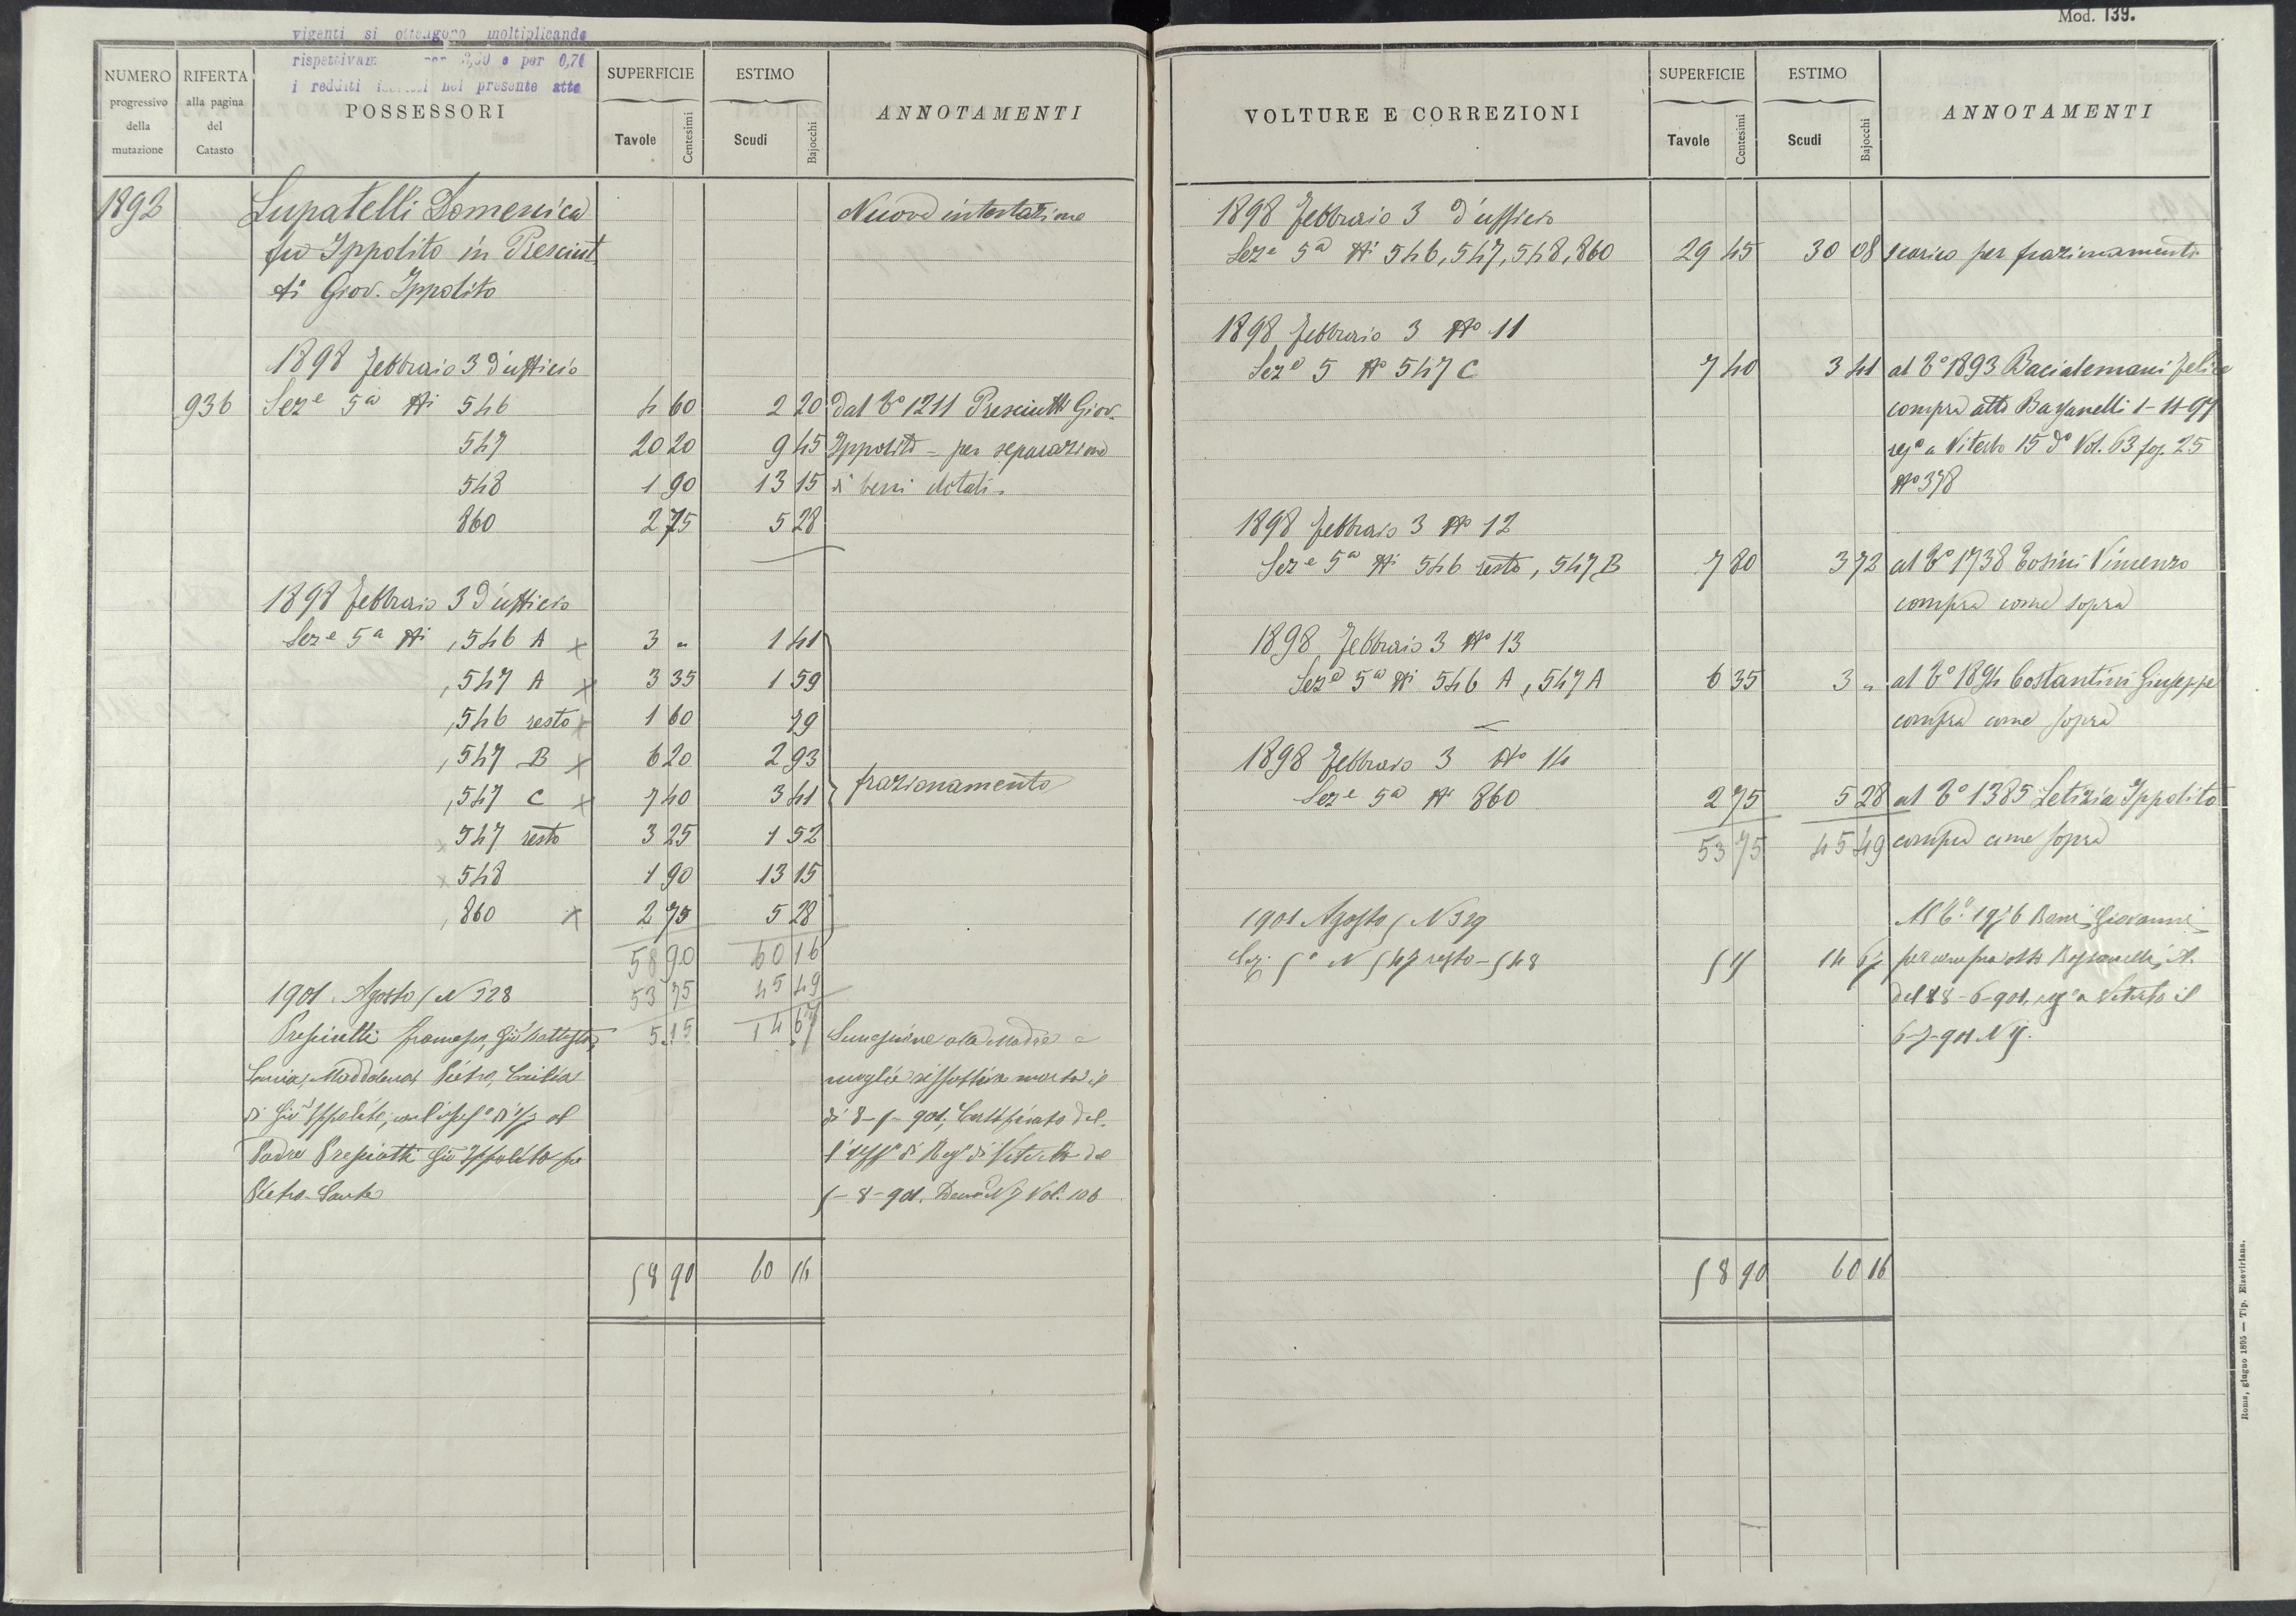 vigenti si ottengono moltiplicando
rispettivam per 3,50 e per 0,70
i redditi nel presente atto
NUMERO progressivo della mutazione
RIFERTA alla pagina del Catasto
POSSESSORI
SUPERFICIE Tavole Centesimi
ESTIMO Scudi Bajocchi
ANNOTAMENTI
1892 Lupatelli Domenica Nuova intestazione
fu Ippolito in Presciut
ti Giov. Ippolito
1898 Febbraio 3 d'ufficio
936 Seze 5a Ni 546 4 60 2 20 Dal To 1211 Presciutti Giov.
547 20 20 9 45 Ippolito - per separazione
548 1 90 13 15 di beni dotali.
860 2 75 5 28
1898 Febbraio 3 d'ufficio
Seze 5a Ni , 546 A x 3 „ 1 41
, 547 A x 3 35 1 59
, 546 resto x 1 60 79
, 547 B x 6 20 2 93
, 547 C x 7 40 3 41 frazionamento
x 547 resto 3 25 1 52
x 548 1 90 13 15
, 860 x 2 75 5 28
58 90 60 16
53 75 45 49
1901. Agosto 5 N 328 5.15 14 67
Presciutti Francesco, Gio Battista, Successione alla Madre e
Lucia, Maddalena, Pietro, Cecilia moglie rispettiva morta il
di Gio Ippolito, con l'usufo di 1/7 al dì 8-5-901; Certificato del-
Padre Presciutti Gio Ippolito fu l'uffo di Rego di Viterbo del
Pietro Sante 5-8-901. Denª N 7 Vol. 106
58 90 60 16
Mod. 139.
VOLTURE E CORREZIONI
SUPERFICIE Tavole Centesimi
ESTIMO Scudi Bajocchi
ANNOTAMENTI
1898 Febbraio 3 d'ufficio
Seze 5a Ni 546, 547, 548, 860 29 45 30 08 scarico per frazionamento
1898 Febbraio 3 No 11
Seze 5 No 547 C 7 40 3 41 al To 1893 Bacialemani Felice
compra atto 1-11-97
rego a Viterbo 15 do Vol. 63 fog. 25
No 378
1898 Febbraio 3 No 12
Seze 5a Ni 546 resto, 547 B 7 80 3 72 al To 1738 Tosini Vincenzo
compra come sopra
1898 Febbraio 3 No 13
Seze 5a Ni 546 A, 547 A 6 35 3 „ al To 1894 Costantini Giuseppe
compra come sopra
1898 Febbraio 3 No 14
Seze 5a N 860 2 75 5 28 al To 1385 Letizia Ippolito
53 75 45 49 compra come sopra
1901 Agosto 5 N 329 Al To Giovanni
Sez. 5a N 547 resto - 548 5 15 14 67 per compra atto A.
del 18-6-901, rego a Viterbo il
6-7-901 N 9.
58 90 60 16
Roma, giugno 1895 — Tip. Elzeviriana.